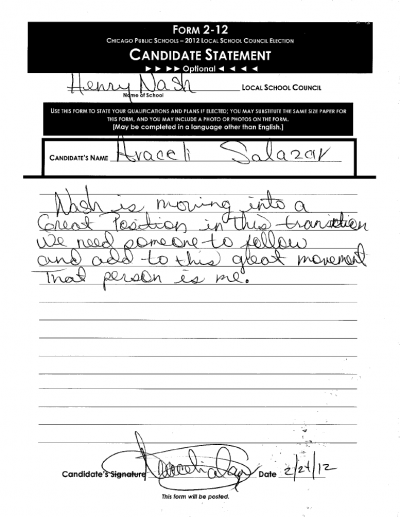 FORM 2-12
CHICAGO PUBLIC SCHOOLS – 2012 LOCAL SCHOOL COUNCIL ELECTION
CANDIDATE STATEMENT
►►►► Optional ◄◄◄◄
Henry Nash LOCAL SCHOOL COUNCIL
Name of School
USE THIS FORM TO STATE YOUR QUALIFICATIONS AND PLANS IF ELECTED; YOU MAY SUBSTITUTE THE SAME SIZE PAPER FOR
THIS FORM, AND YOU MAY INCLUDE A PHOTO OR PHOTOS ON THE FORM.
[May be completed in a language other than English.]
CANDIDATE'S NAME Araceli Salazar
Nash is moving into a
Great Position in this transition
We need someone to follow
and add to this great movement
That person is me.
Candidate's Signature Date 2/24/12
This form will be posted.